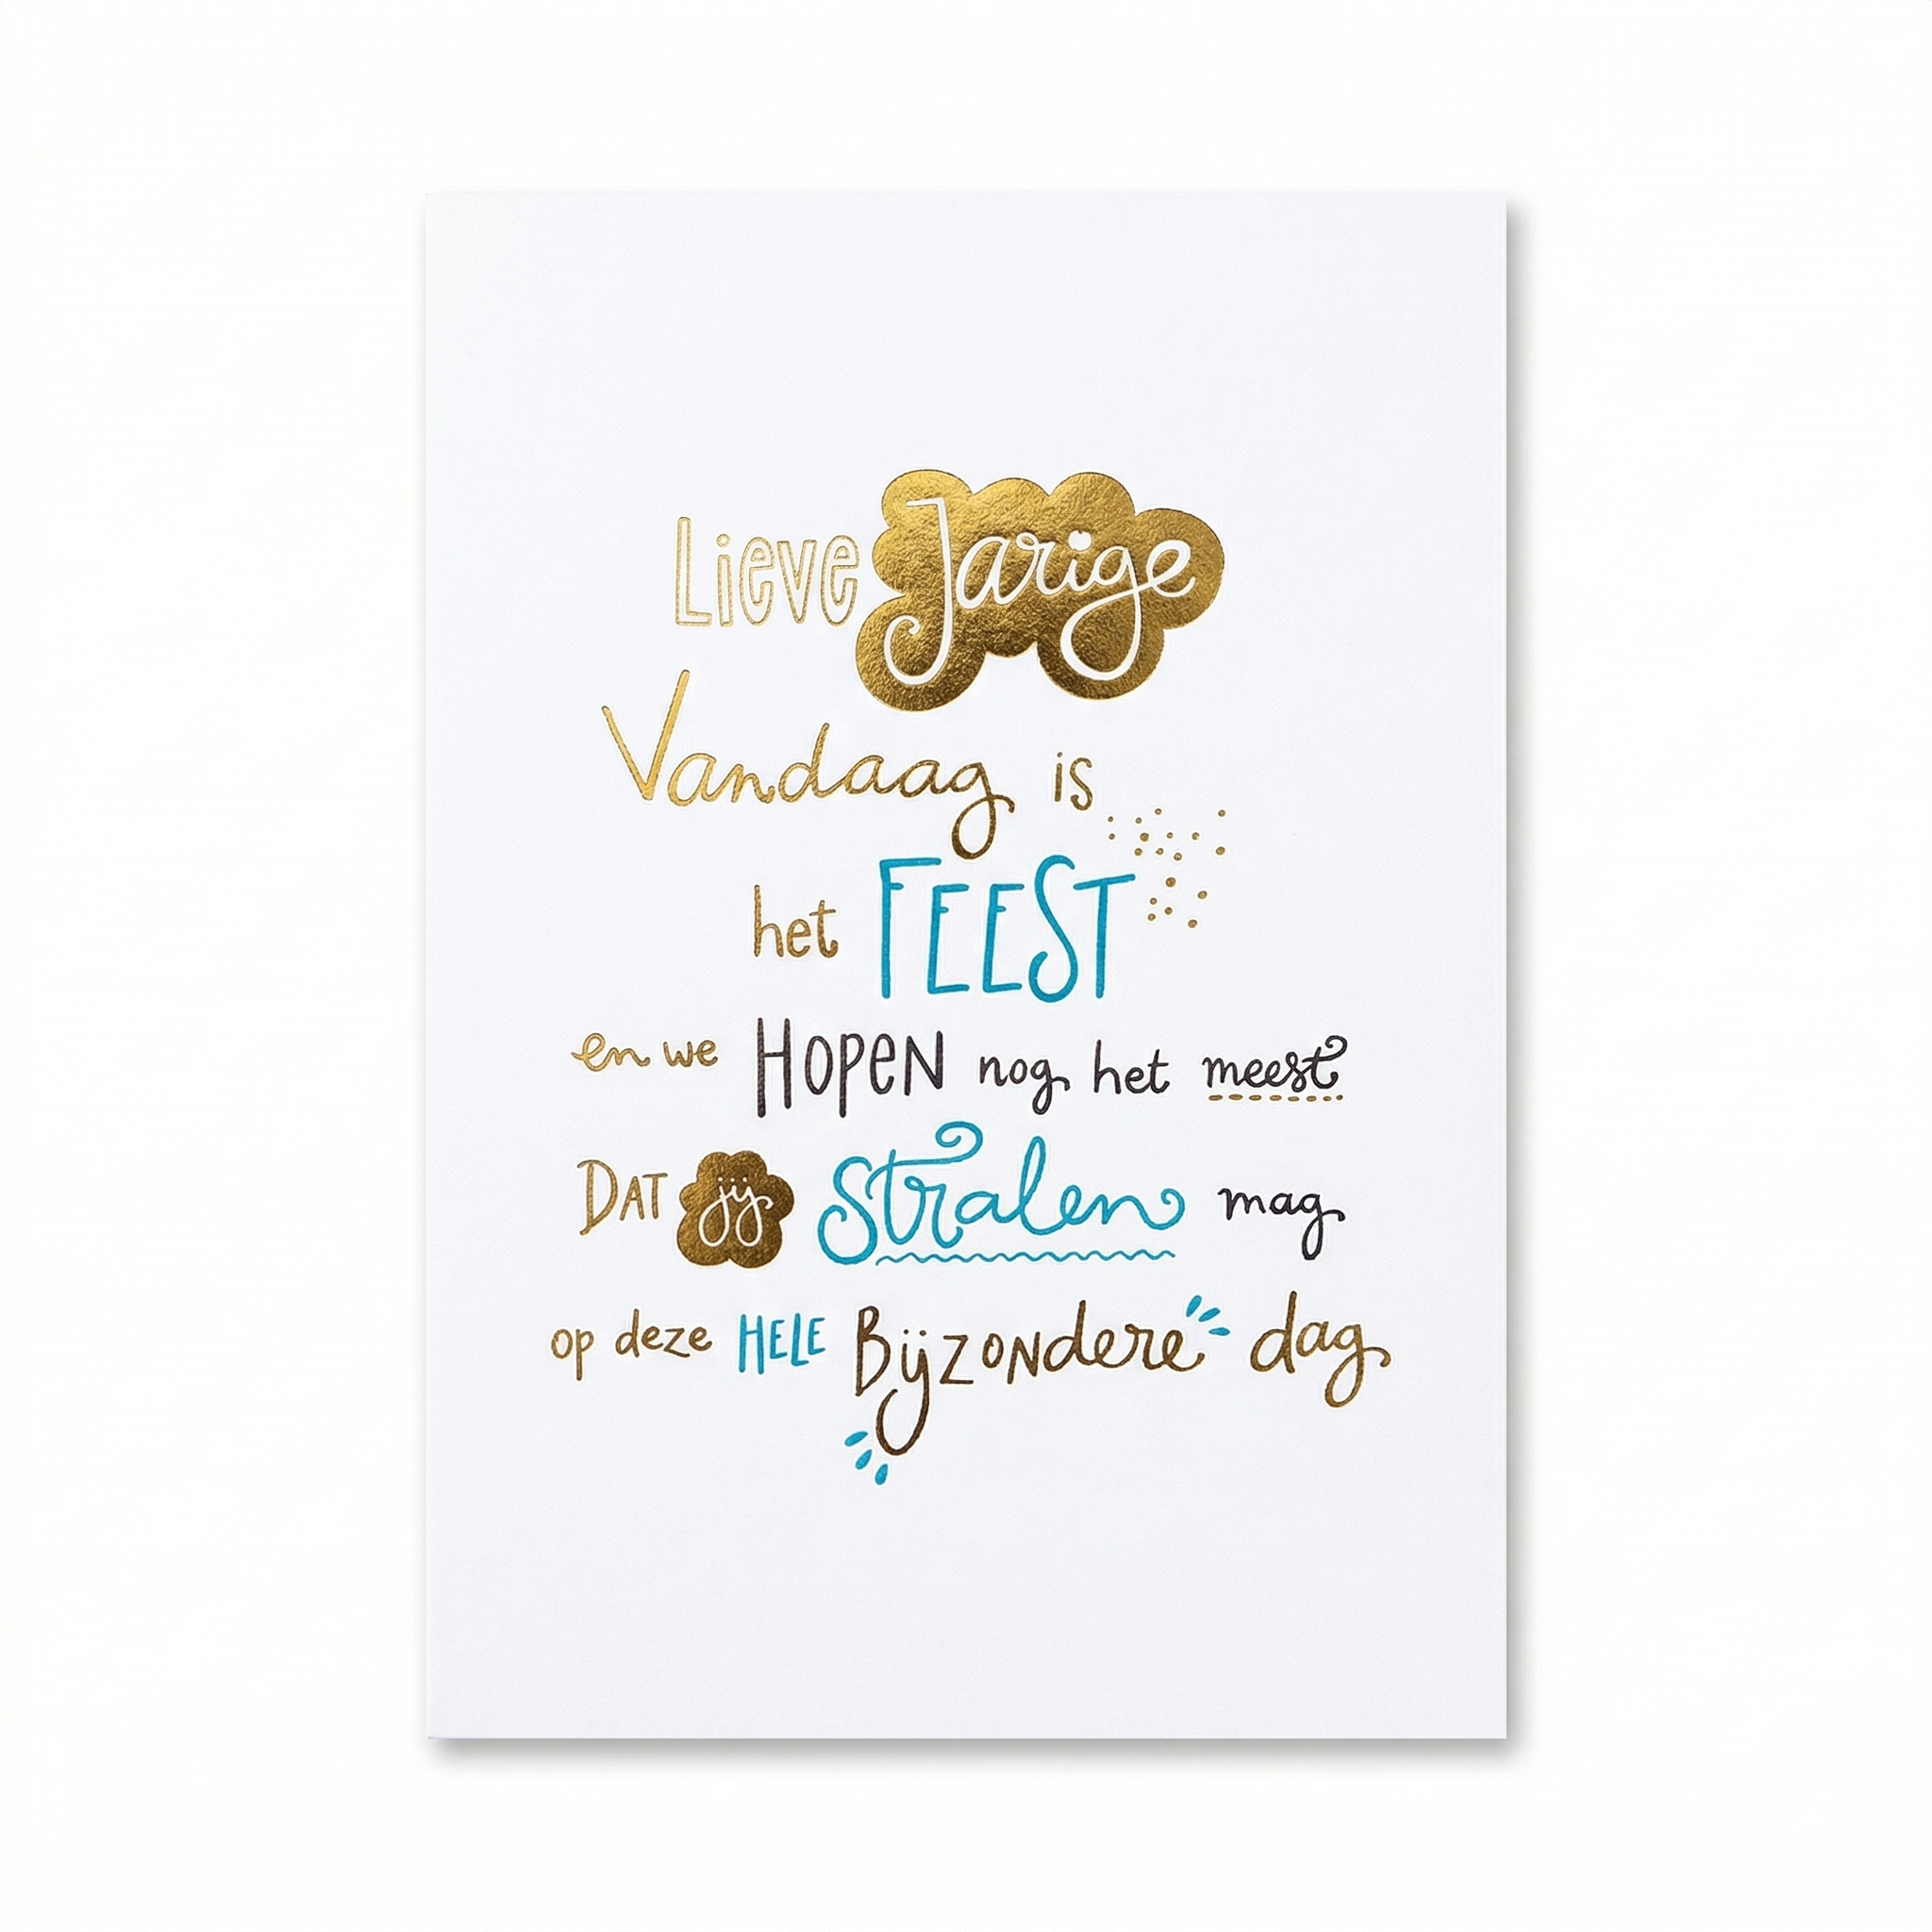 Lieve Jarige
Vandaag is
het FEEST
en we HOPEN nog het meest
DAT jij Stralen mag
op deze HELE Bijzondere dag